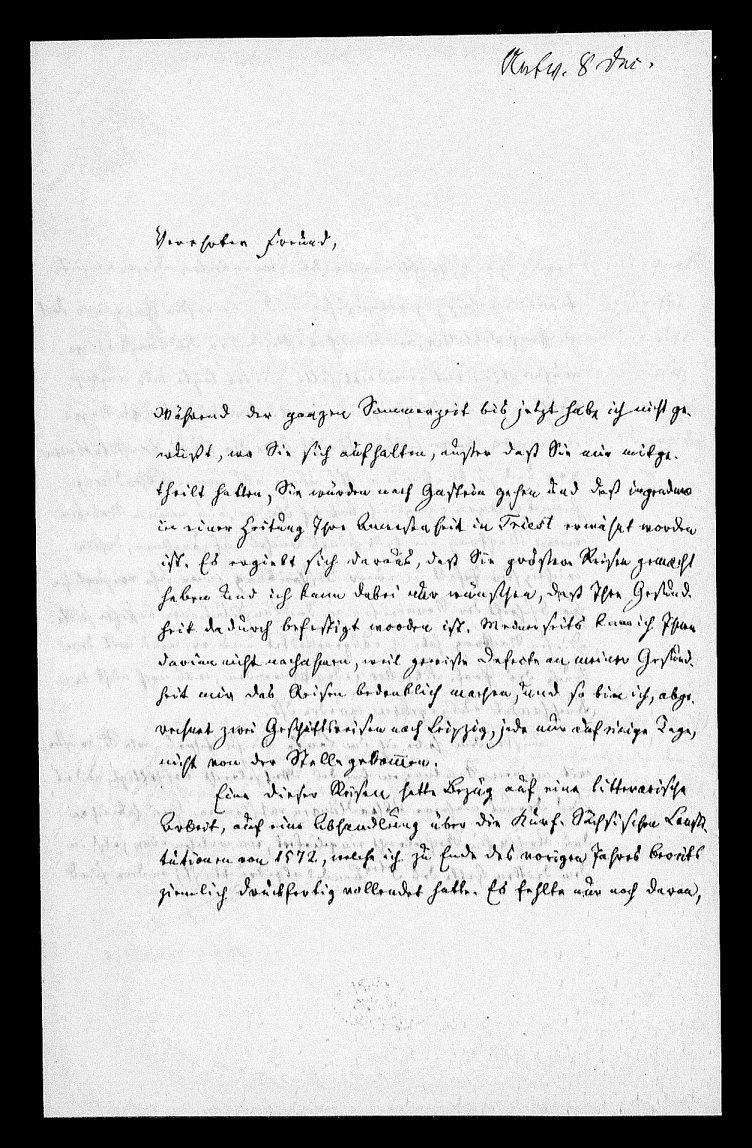 Antw. 8 Dec.
Verehrter Freund,
Während der ganzen Sommerzeit bis jetzt habe ich nicht ge-
wußt, wo Sie sich aufhalten, außer daß Sie mir mitge-
theilt hatten, Sie würden nach Gastein gehen und daß irgendwo
in einer Zeitung Ihre Anwesenheit in Triest erwähnt worden
ist. Es ergiebt sich daraus, daß Sie größere Reisen gemacht
haben und ich kann dabei nur wünschen, daß Ihre Gesund-
heit dadurch befestigt worden ist. Meinerseits kann ich Ihnen
darinn nicht nachahmen, weil gewisse Defecte an meiner Gesund-
heit mir das Reisen bedenklich machen, und so bin ich, abge-
rechnet zwei Geschäftsreisen nach Leipzig, jede nur auf einige Tage,
nicht von der Stelle gekommen.
Eine dieser Reisen hatte Bezug auf eine litterarische
Arbeit, auf eine Abhandlung über die Kurf. Sächsischen Consti-
tutionen von 1572, welche ich zu Ende des vorigen Jahres bereits
ziemlich druckfertig vollendet hatte. Es fehlte nur noch daran,